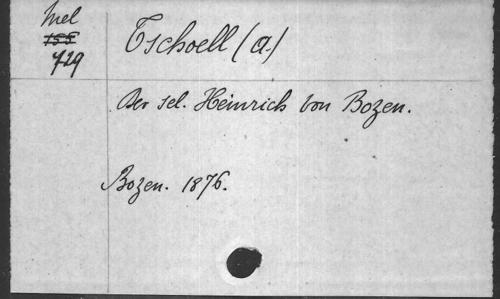 Mel
155
729
Tschoell (a.)
Der sel. Heinrich von Bozen.
Bozen. 1876.